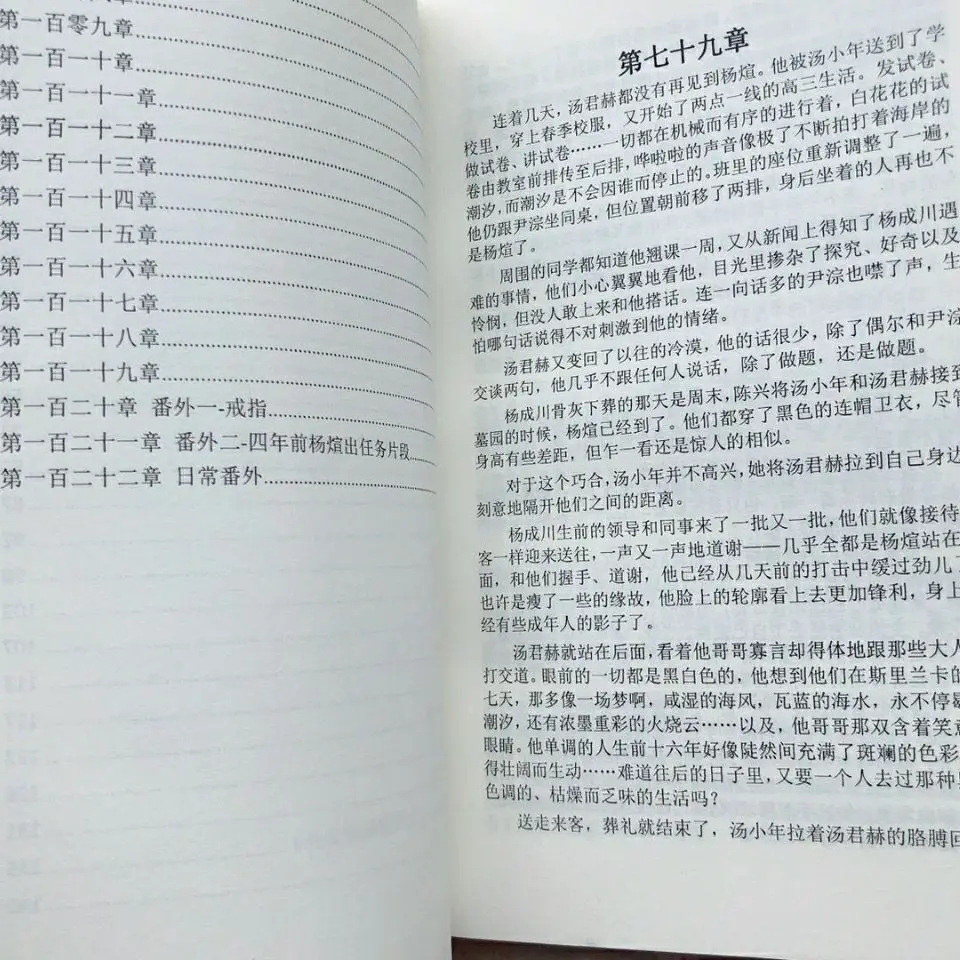 第一百零九章
第一百一十章
第一百一十一章
第一百一十二章
第一百一十三章
第一百一十四章
第一百一十五章
第一百一十六章
第一百一十七章
第一百一十八章
第一百一十九章
第一百二十章 番外一-戒指
第一百二十一章 番外二-四年前杨煊出任务片段
第一百二十二章 日常番外
第七十九章
连着几天，汤君赫都没有再见到杨煊。他被汤小年送到了学
校里，穿上春季校服，又开始了两点一线的高三生活。发试卷、
做试卷、讲试卷……一切都在机械而有序的进行着，白花花的试
卷由教室前排传至后排，哗啦啦的声音像极了不断拍打着海岸的
潮汐，而潮汐是不会因谁而停止的。班里的座位重新调整了一遍，
他仍跟尹淙坐同桌，但位置朝前移了两排，身后坐着的人再也不
是杨煊了。
周围的同学都知道他翘课一周，又从新闻上得知了杨成川遇
难的事情，他们小心翼翼地看他，目光里掺杂了探究、好奇以及
怜悯，但没人敢上来和他搭话。连一向话多的尹淙也噤了声，生
怕哪句话说得不对刺激到他的情绪。
汤君赫又变回了以往的冷漠，他的话很少，除了偶尔和尹淙
交谈两句，他几乎不跟任何人说话，除了做题，还是做题。
杨成川骨灰下葬的那天是周末，陈兴将汤小年和汤君赫接到
墓园的时候，杨煊已经到了。他们都穿了黑色的连帽卫衣，尽管
身高有些差距，但乍一看还是惊人的相似。
对于这个巧合，汤小年并不高兴，她将汤君赫拉到自己身边
刻意地隔开他们之间的距离。
杨成川生前的领导和同事来了一批又一批，他们就像接待
客一样迎来送往，一声又一声地道谢——几乎全都是杨煊站在
面，和他们握手、道谢，他已经从几天前的打击中缓过劲儿了
也许是瘦了一些的缘故，他脸上的轮廓看上去更加锋利，身上
经有些成年人的影子了。
汤君赫就站在后面，看着他哥哥寡言却得体地跟那些大人
打交道。眼前的一切都是黑白色的，他想到他们在斯里兰卡的
七天，那多像一场梦啊，咸湿的海风，瓦蓝的海水，永不停歇
潮汐，还有浓墨重彩的火烧云……以及，他哥哥那双含着笑意
眼睛。他单调的人生前十六年好像陡然间充满了斑斓的色彩
得壮阔而生动……难道往后的日子里，又要一个人去过那种
色调的、枯燥而乏味的生活吗？
送走来客，葬礼就结束了，汤小年拉着汤君赫的胳膊回